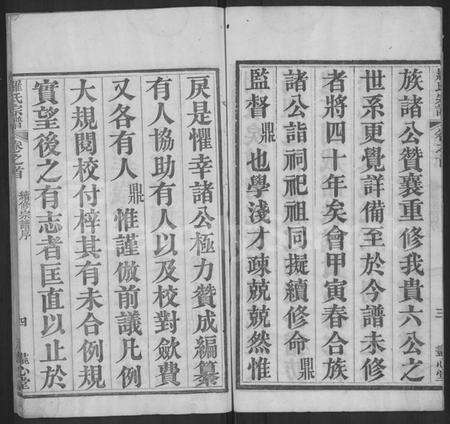 族諸公贊襄重修我貴六公之
世系更覺詳備至於今譜未修
者將四十年矣會甲寅春合族
諸公詣祠祀祖同擬續修命鼎
監督鼎也學淺才疎兢兢然惟
三
戾是懼幸諸公極力贊成編纂
有人協助有人以及校對歛費
又各有人鼎惟謹倣前議凡例
大規閱校付梓其有未合例規
實望後之有志者匡直以止於
羅氏宗譜 卷之首 續修宗譜序 四